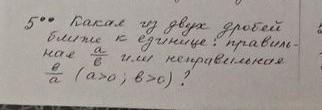 5°° Какая из двух дробей
ближе к единице: правиль-
ная a/в или неправильная
в/a (a>o; в>o)?